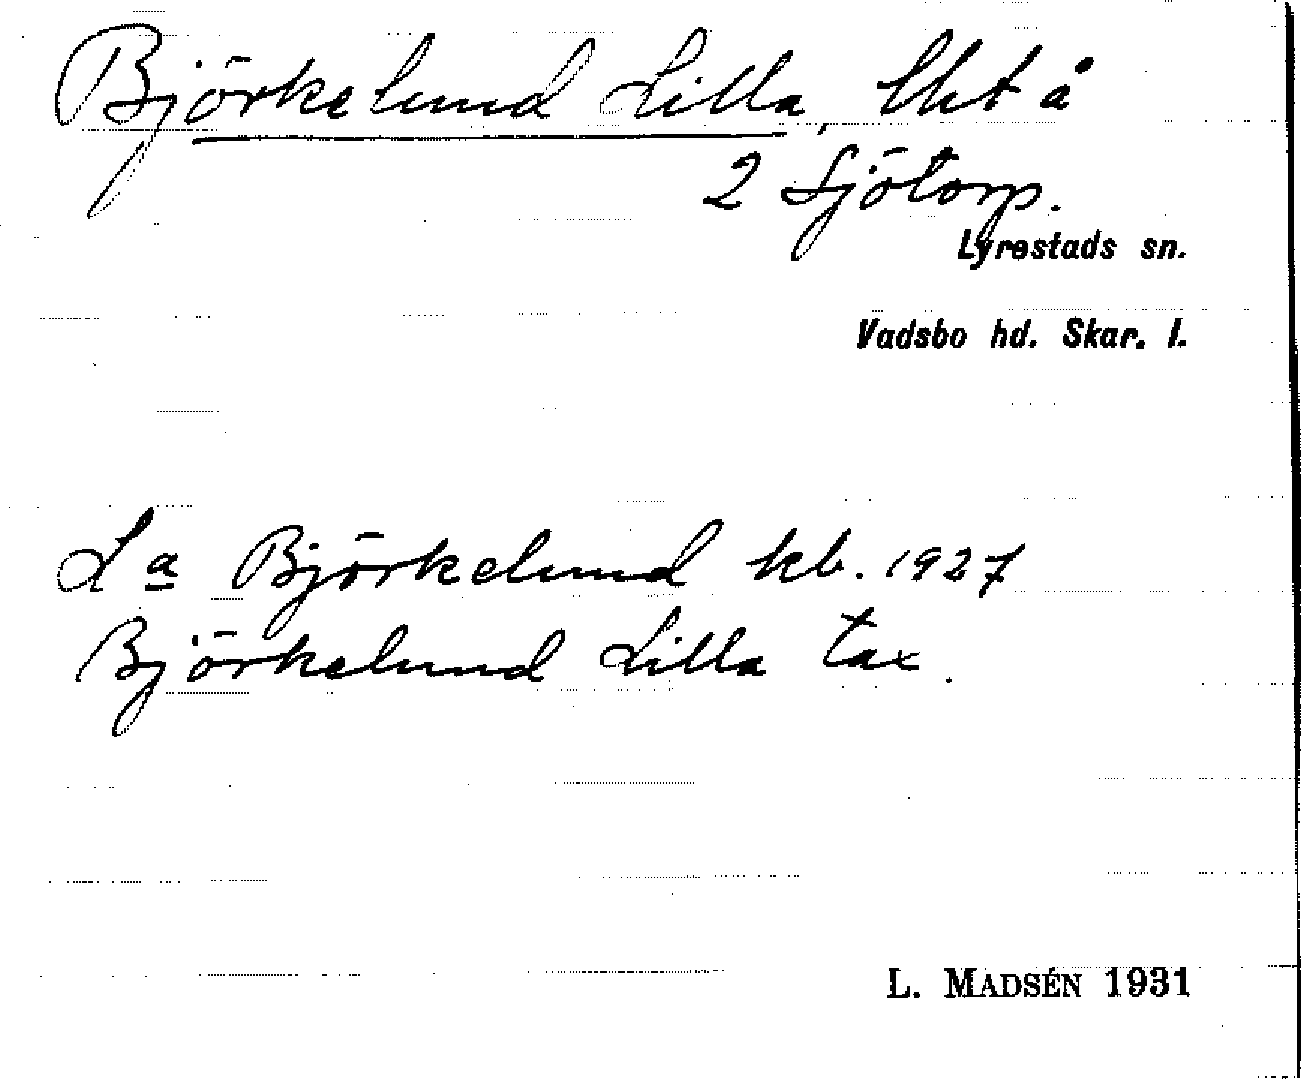 Björkelund Lilla, lht å
2 Sjötorp.
Lyrestads sn.
Vadsbo hd. Skar. l.
La Björkelund kb. 1927
Björkelund Lilla tax.
L. MADSÉN 1931